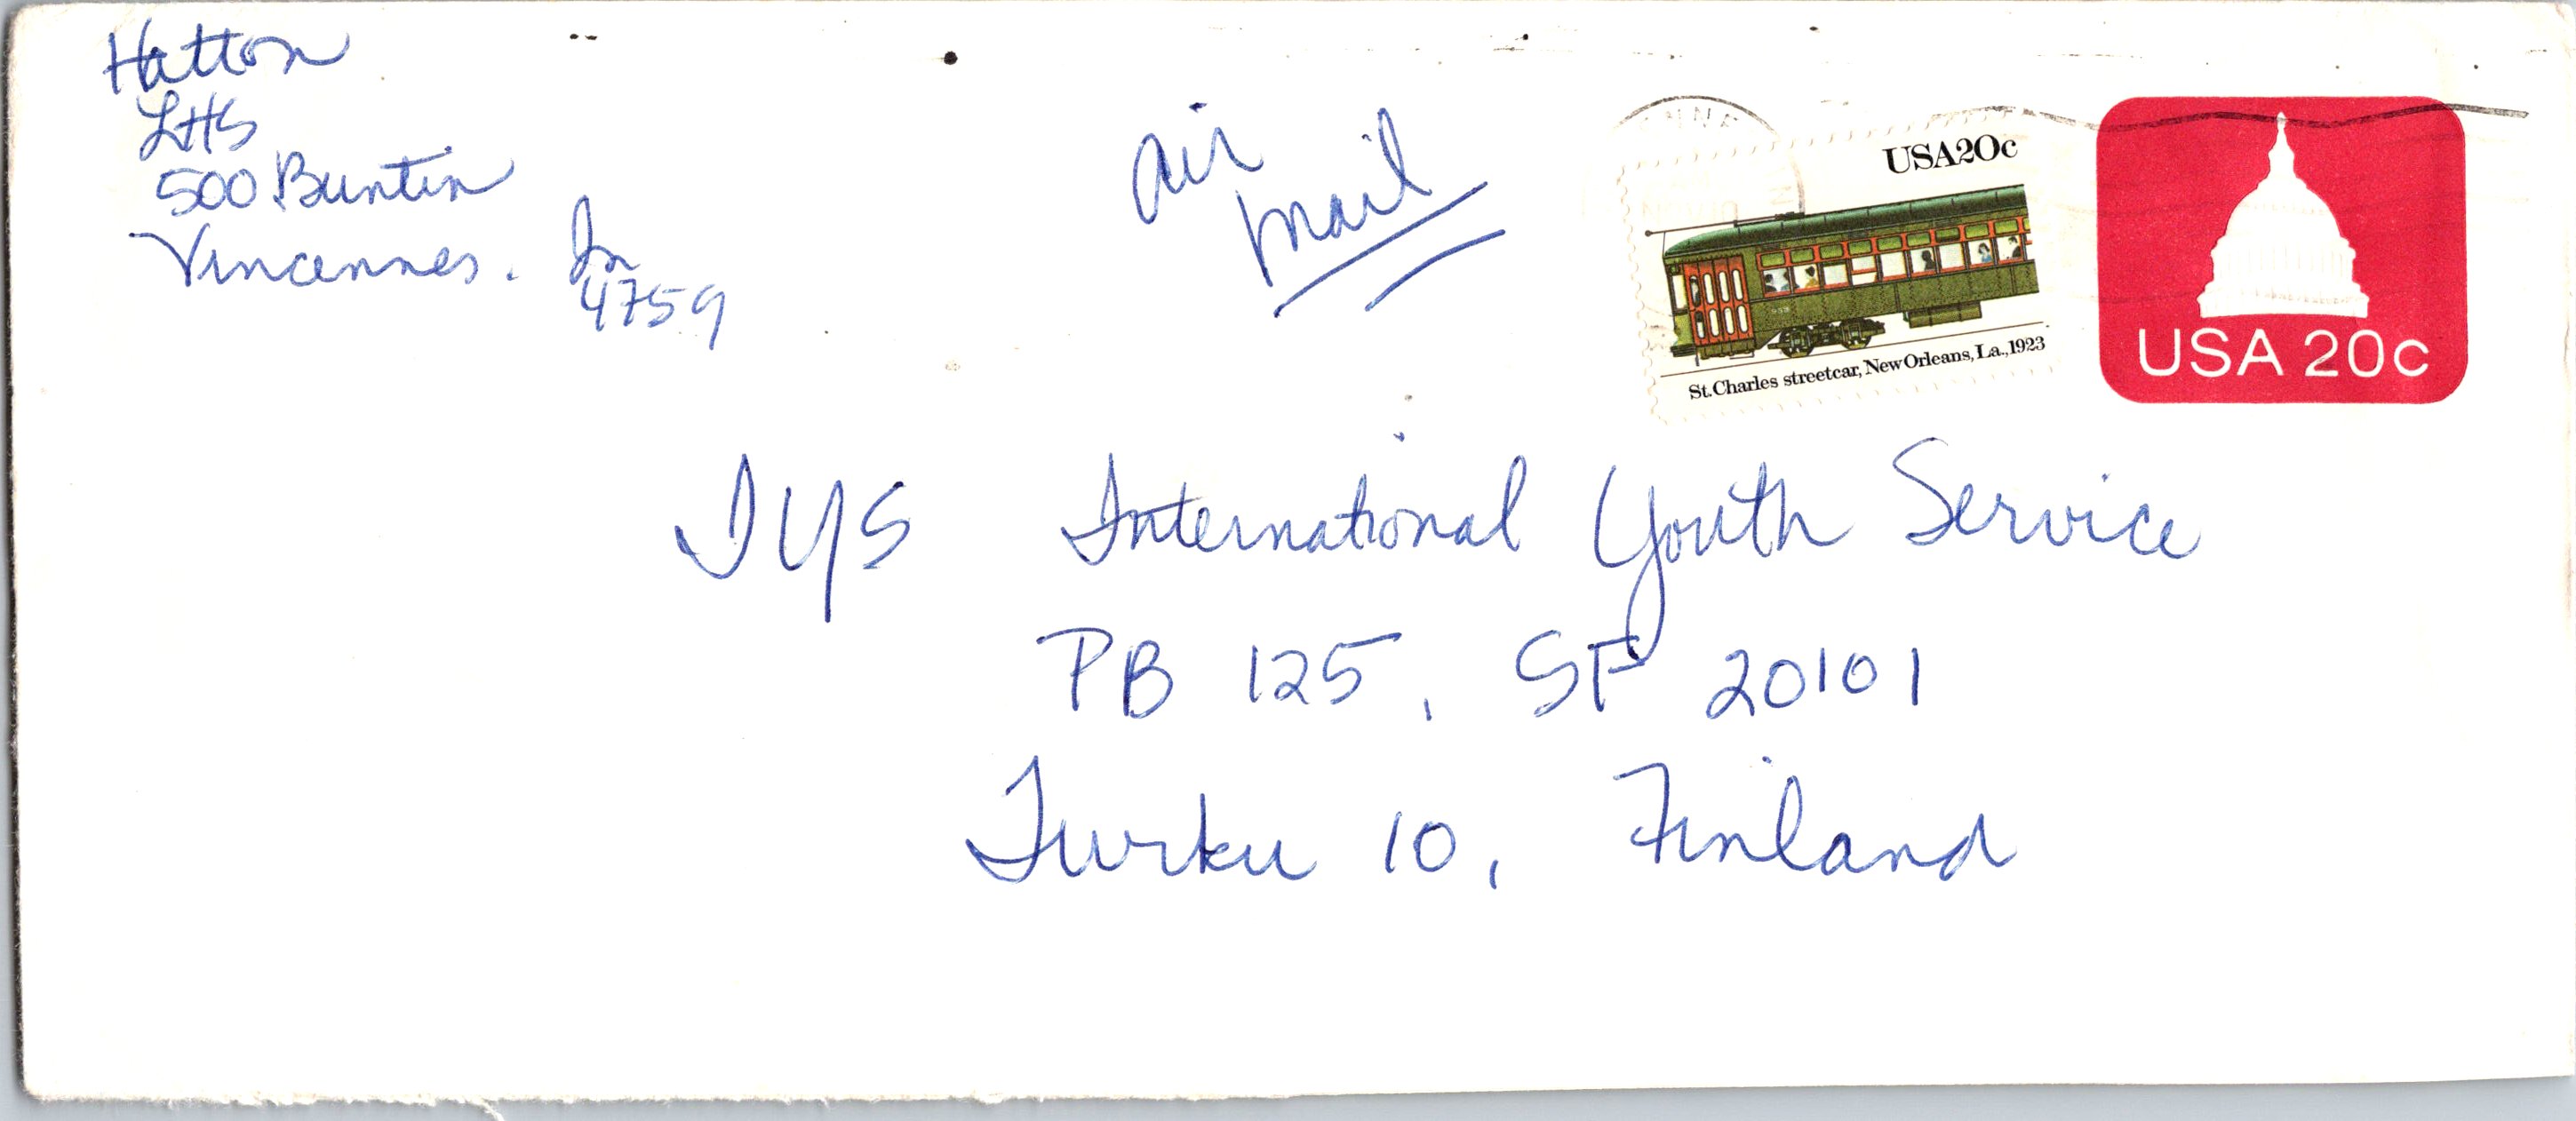 Hatton
LHS
500 Buntin
Vincennes. In
4759
air
mail
USA20c
St. Charles streetcar, New Orleans, La., 1923
USA 20c
IYS International Youth Service
PB 125, SF 20101
Turku 10, Finland